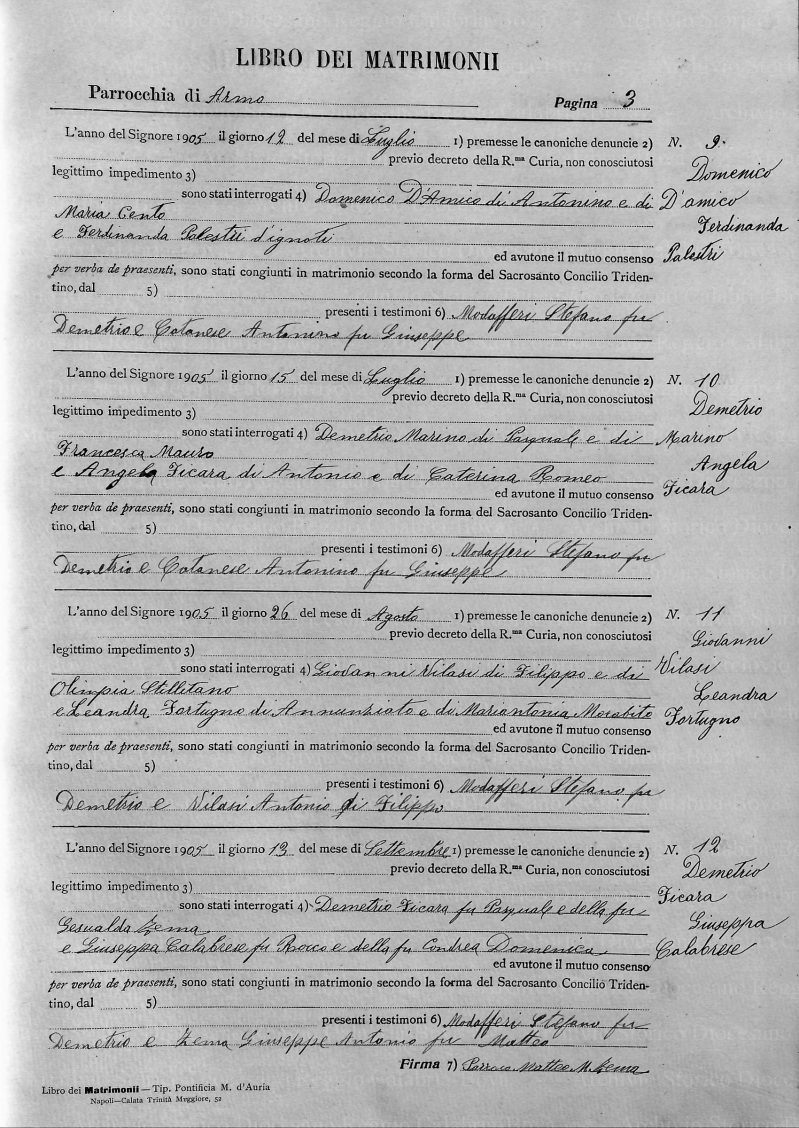 LIBRO DEI MATRIMONII
Parrocchia di Armo Pagina 3
L'anno del Signore 1905 il giorno 12 del mese di Luglio 1) premesse le canoniche denuncie 2) N. 9.
previo decreto della R.ma Curia, non conosciutosi Domenico
legittimo impedimento 3)
sono stati interrogati 4) Domenico D'Amico di Antonino e di D'amico
Maria Cento Ferdinanda
e Ferdinanda Palestri d'ignoti
ed avutone il mutuo consenso Palestri
per verba de praesenti, sono stati congiunti in matrimonio secondo la forma del Sacrosanto Concilio Triden-
tino, dal 5)
presenti i testimoni 6) Modafferi Stefano fu
Demetrio e Catanese Antonino fu Giuseppe
L'anno del Signore 1905 il giorno 15 del mese di Luglio 1) premesse le canoniche denuncie 2) N. 10
previo decreto della R.ma Curia, non conosciutosi Demetrio
legittimo impedimento 3)
sono stati interrogati 4) Demetrio Marino di Pasquale e di Marino
Francesca Mauro Angela
e Angela Ficara di Antonio e di Caterina Romeo
ed avutone il mutuo consenso Ficara
per verba de praesenti, sono stati congiunti in matrimonio secondo la forma del Sacrosanto Concilio Triden-
tino, dal 5)
presenti i testimoni 6) Modafferi Stefano fu
Demetrio e Catanese Antonino fu Giuseppe
L'anno del Signore 1905 il giorno 26 del mese di Agosto 1) premesse le canoniche denuncie 2) N. 11
previo decreto della R.ma Curia, non conosciutosi Giovanni
legittimo impedimento 3)
sono stati interrogati 4) Giovanni Vilasi di Filippo e di Vilasi
Olimpia Stilletano Leandra
e Leandra Fortugno di Annunziato e di Mariantonia Morabito Fortugno
ed avutone il mutuo consenso
per verba de praesenti, sono stati congiunti in matrimonio secondo la forma del Sacrosanto Concilio Triden-
tino, dal 5)
presenti i testimoni 6) Modafferi Stefano fu
Demetrio e Vilasi Antonio di Filippo
L'anno del Signore 1905 il giorno 13 del mese di Settembre 1) premesse le canoniche denuncie 2) N. 12
previo decreto della R.ma Curia, non conosciutosi Demetrio
legittimo impedimento 3) Ficara
sono stati interrogati 4) Demetrio Ficara fu Pasquale e della fu
Gesualda Zema Giuseppa
e Giuseppa Calabrese fu Rocco e della fu Condrea Domenica Calabrese
ed avutone il mutuo consenso
per verba de praesenti, sono stati congiunti in matrimonio secondo la forma del Sacrosanto Concilio Triden-
tino, dal 5)
presenti i testimoni 6) Modafferi Stefano fu
Demetrio e Zema Giuseppe Antonio fu Matteo
Firma 7) Parroco Matteo M. Zema
Libro dei Matrimonii — Tip. Pontificia M. d'Auria
Napoli—Calata Trinità Maggiore, 52